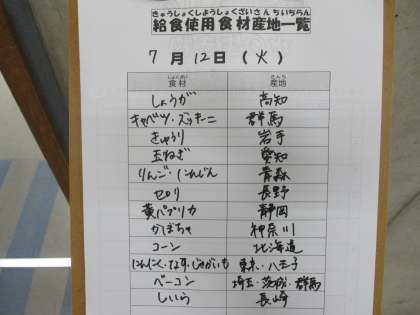 きゅうしょくしようしょくざいさんちいちらん
給食使用食材産地一覧
7月12日(火)
しょくざい さんち
食材 産地
しょうが 高知
キャベツ・ズッキーニ 群馬
きゅうり 岩手
玉ねぎ 愛知
りんご・にんじん 青森
セロリ 長野
黄パプリカ 静岡
かぼちゃ 神奈川
コーン 北海道
にんにく・なす・じゃがいも 東京・八王子
ベーコン 埼玉・茨城・群馬
しいら 長崎